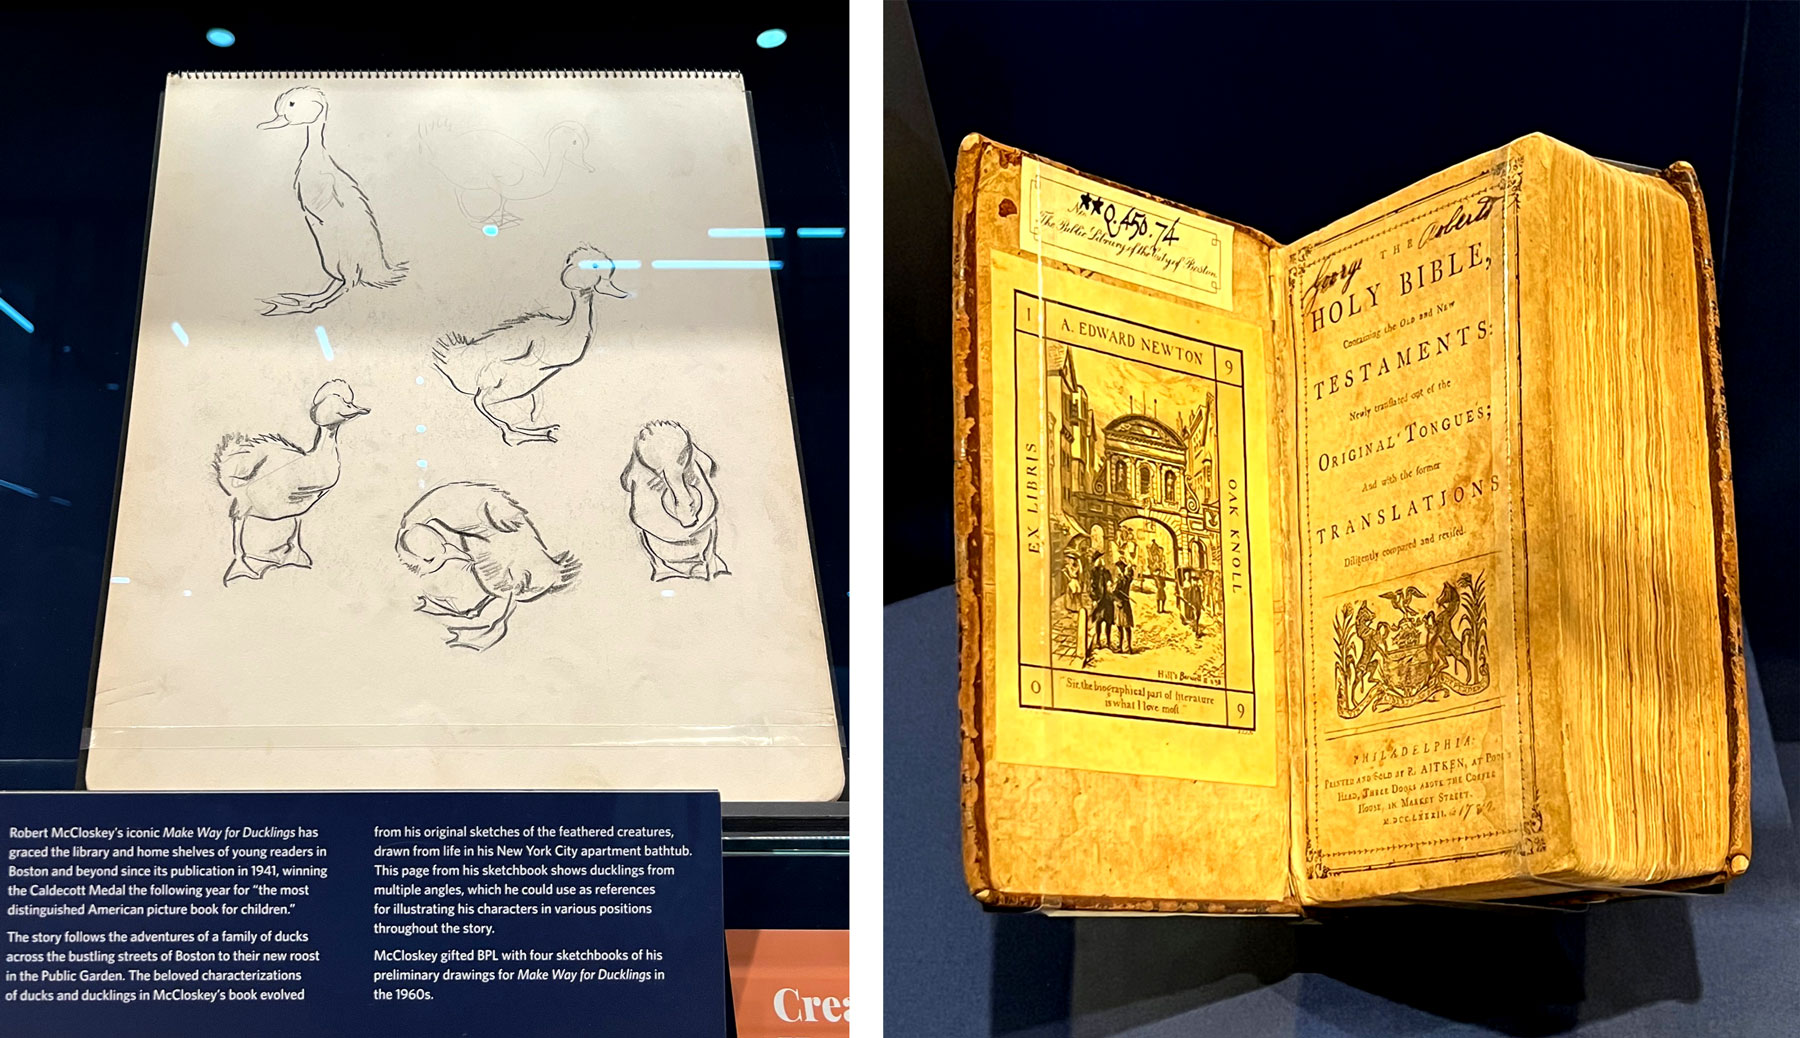 Robert McCloskey's iconic Make Way for Ducklings has
graced the library and home shelves of young readers in
Boston and beyond since its publication in 1941, winning
the Caldecott Medal the following year for “the most
distinguished American picture book for children.”
The story follows the adventures of a family of ducks
across the bustling streets of Boston to their new roost
in the Public Garden. The beloved characterizations
of ducks and ducklings in McCloskey's book evolved
from his original sketches of the feathered creatures,
drawn from life in his New York City apartment bathtub.
This page from his sketchbook shows ducklings from
multiple angles, which he could use as references
for illustrating his characters in various positions
throughout the story.
McCloskey gifted BPL with four sketchbooks of his
preliminary drawings for Make Way for Ducklings in
the 1960s.
Crea
No. **Q.450.74
The Public Library of the City of Boston
1 A. EDWARD NEWTON 9
EX LIBRIS
OAK KNOLL
0 "Sir, the biographical part of literature 9
is what I love most"
George Roberts
THE
HOLY BIBLE,
Containing the OLD and NEW
TESTAMENTS:
Newly translated out of the
ORIGINAL TONGUES;
And with the former
TRANSLATIONS
Diligently compared and revised.
PHILADELPHIA:
PRINTED AND SOLD BY R. AITKEN, AT POPE'S
HEAD, THREE DOORS ABOVE THE COFFEE
HOUSE, IN MARKET STREET.
M.DCC.LXXXII. 1782